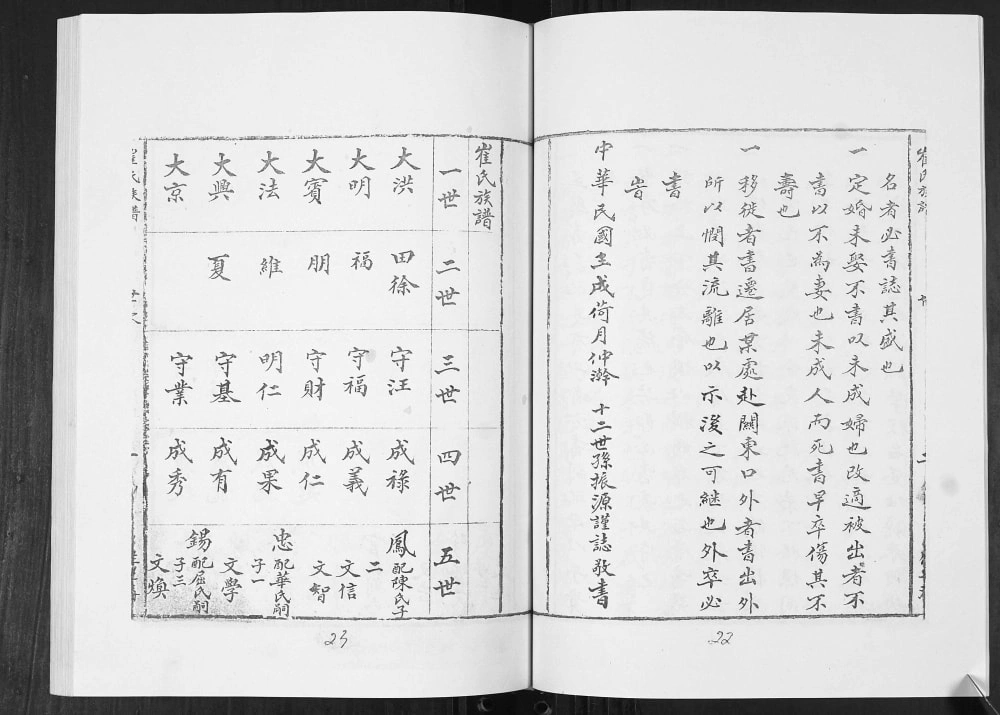 名者必書誌其盛也
一 定婚未娶不書以未成婦也改適被出者不
書以不為妻也未成人而死書早卒傷其不
壽也
一 移徙者書遷居某處赴關東口外者書出外
所以憫其流離也以示後之可繼也外卒必
書
中華民國壬戌荷月仲澣 十二世孫振源謹誌敬書
22
崔氏族譜
一世 二世 三世 四世 五世
大洪 田徐 守汪 成祿 鳳 配陳氏子二
大明 福 守福 成義 文信
大賓 朋 守財 成仁 文智
大法 維 明仁 成果 忠 配華氏嗣子一
大興 夏 守基 成有 文學
大京 守業 成秀 錫 配屈氏嗣子三
文煥
崔氏族譜
23